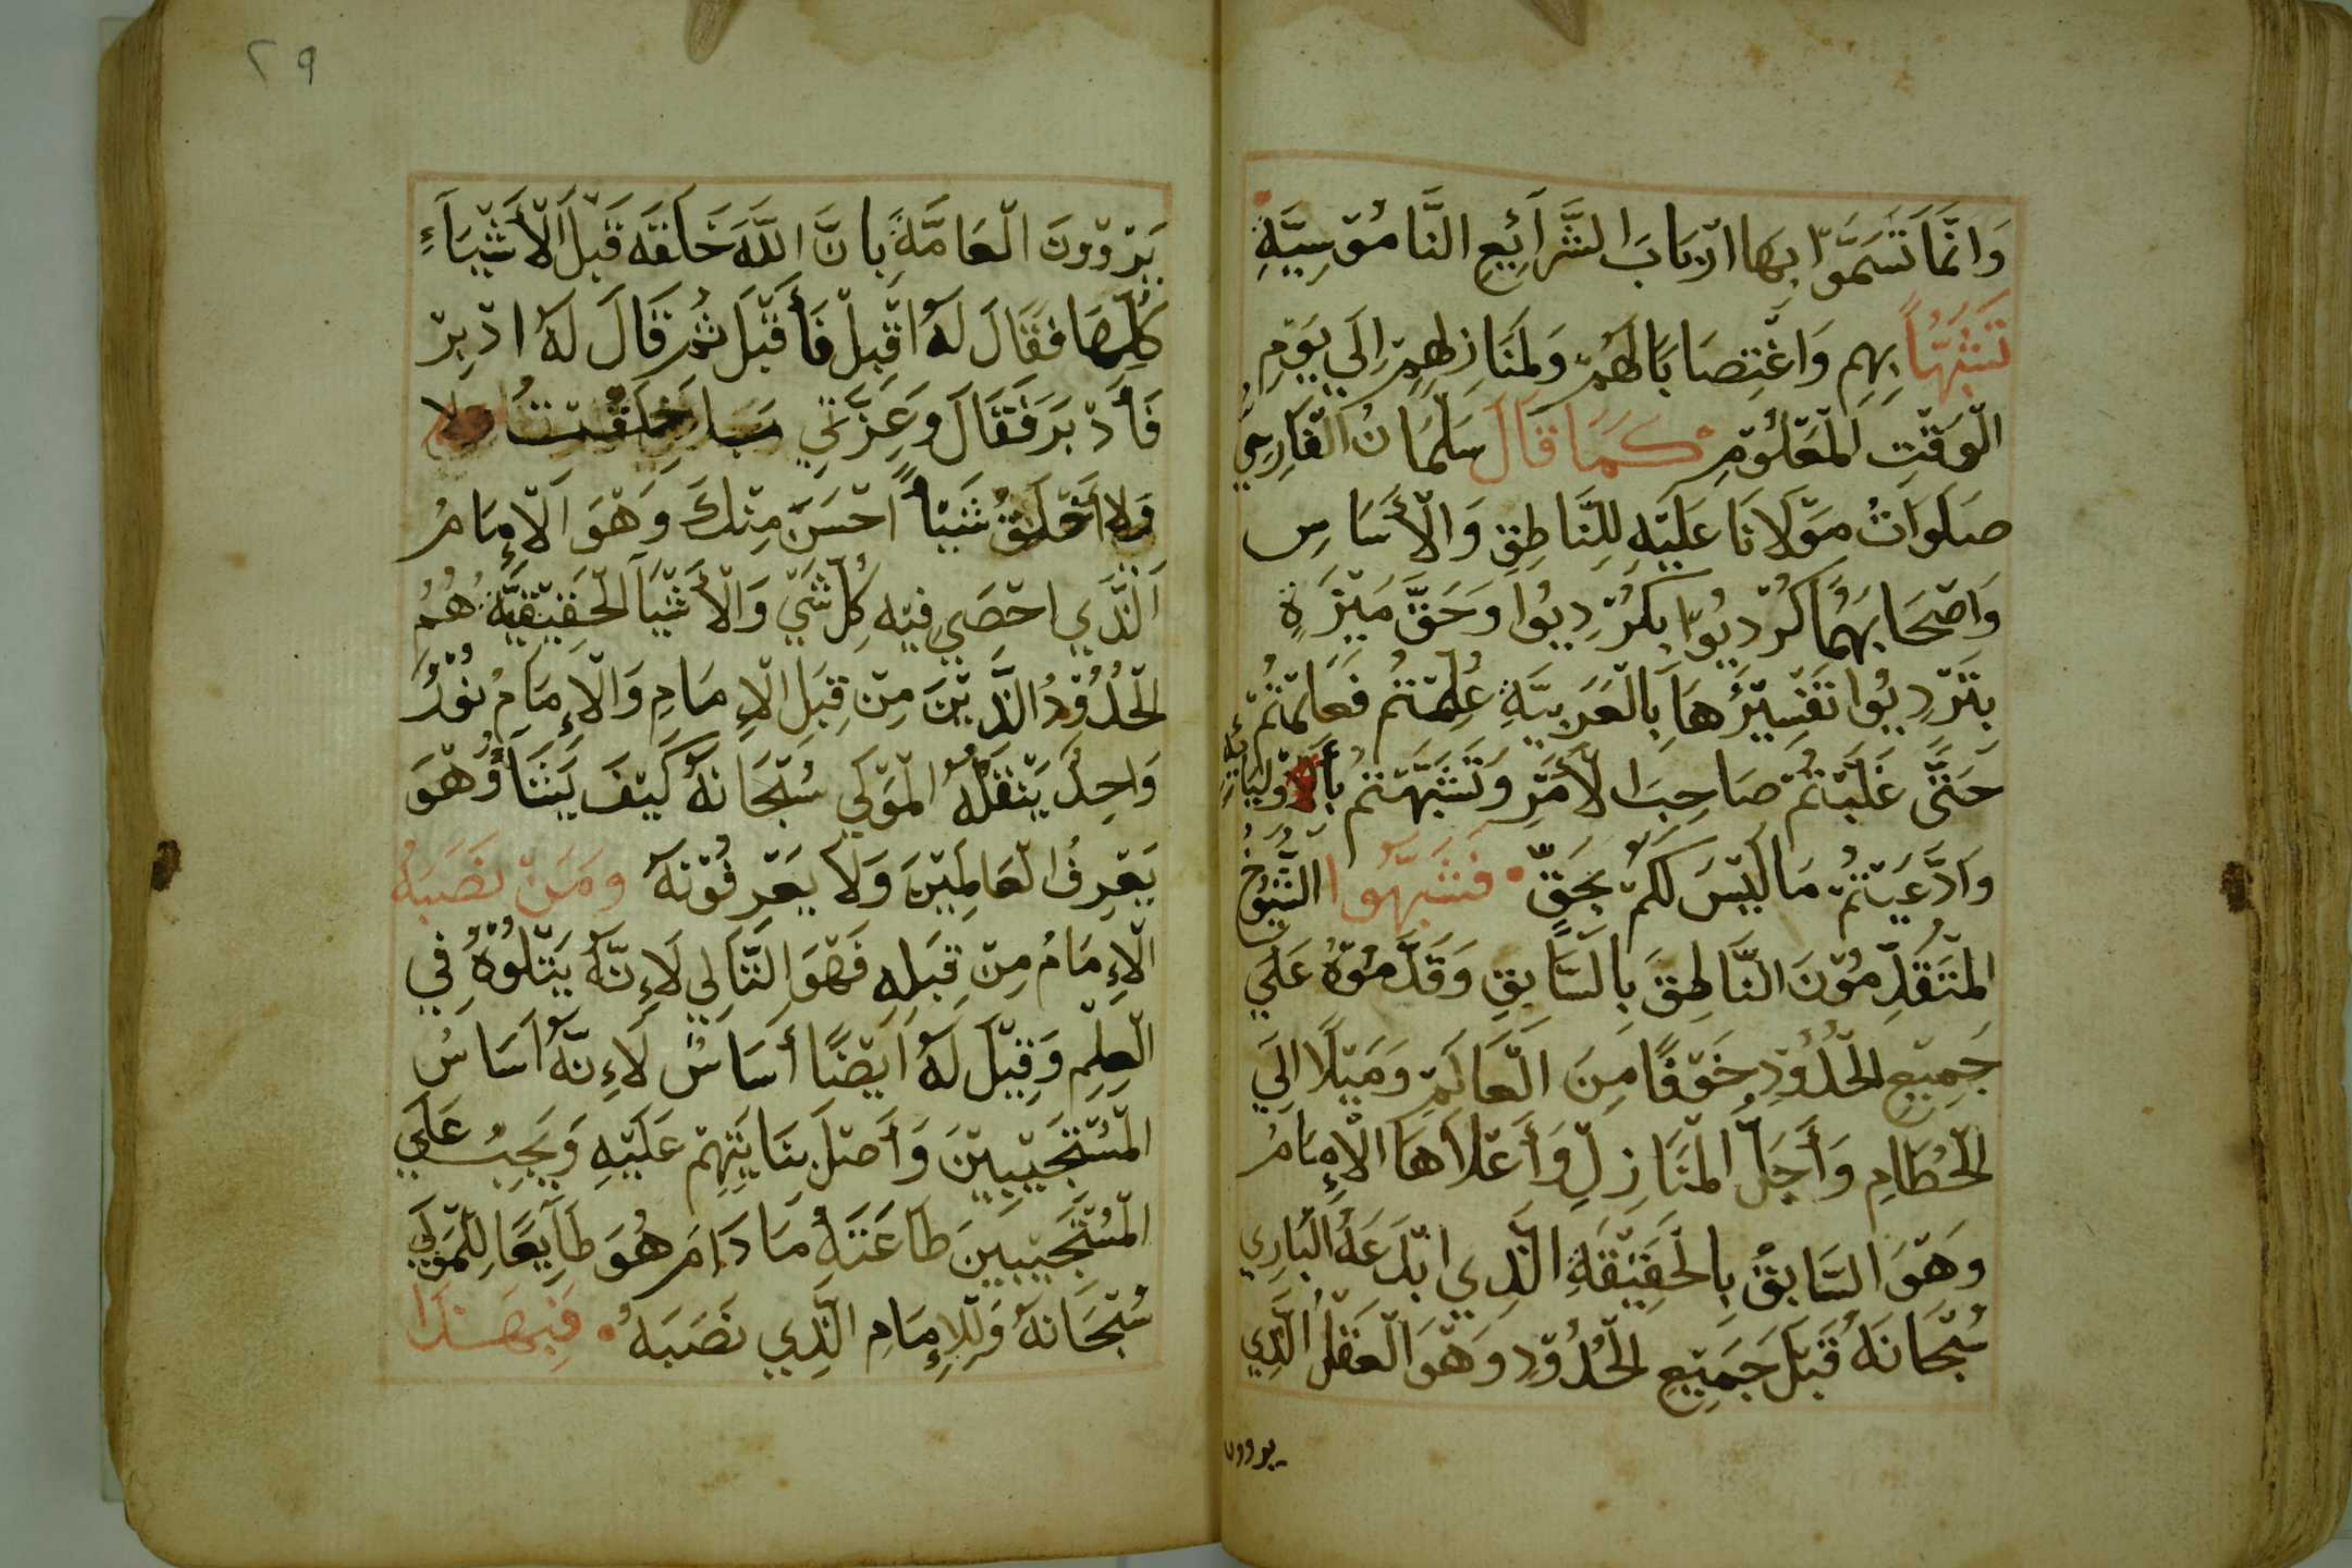 وَانَّمَا تَسَمَّوْا بِهَا ارْبَابَ الشَّرَائِعِ النَّامُوْسِيَّةِ
تَشَبُّهًا بِهِم وَاغْتِصَابًا لَهُمْ وَلِمَنَازِلِهِمْ اِلَي يَوْمِ
الْوَقْتِ الْمَعْلُوْمِ كَمَا قَالَ سَلْمَانُ الْفَارِسِي
صَلَوَاتُ مَوْلَانَا عَلَيْهِ لِلنَّاطِقِ وَالْأَسَاسِ
وَاصْحَابِهِمَا كُرْدِيُوا بِكُرْدِيُوا وَحَقَّ مِيْزَةٍ
بِتَرْدِيُوا تَفْسِيْرُهَا بِالْعَرَبِيَّةِ عُلِّمْتُمْ فَعَلِمْتُمْ
حَتَّي غَلَبْتُمْ صَاحِبَ الْأَمْرِ وَتَشَبَّهْتُمْ بِأَوْلِيَائِهِ
وَادَّعَيْتُمْ مَا لَيْسَ لَكُمْ بِحَقٍّ فَشَبَّهُوا الشُّيُوْخُ
الْمُتَقَدِّمُوْنَ النَّاطِقَ بِالسَّابِقِ وَقَدَّمُوْهُ عَلَي
جَمِيْعِ الْحُدُوْدِ خَوْفًا مِنَ الْعَالَمِ وَمَيْلًا اِلَي
الْحُطَامِ وَأَجَلُّ الْمَنَازِلِ وَأَعْلَاهَا الْإِمَامُ
وَهْوَ السَّابِقُ بِالْحَقِيْقَةِ الَّذِي ابْدَعَهُ الْبَارِي
سُبْحَانَهُ قَبْلَ جَمِيْعِ الْحُدُوْدِ وَهْوَ الْعَقْلُ الَّذِي
يروون
٢٩
يَرْوُوْنَ الْعَامَّةُ بِانَّ اللَّهَ خَلَقَهُ قَبْلَ الْأَشْيَاءِ
كُلِّهَا فَقَالَ لَهُ اقْبِلْ فَأَقْبَلَ ثُمَّ قَالَ لَهُ ادْبِرْ
فَأَدْبَرَ فَقَالَ وَعِزَّتِي مَا خَلَقْتُ
وَلا أَخْلُقُ شَيْأً احْسَنَ مِنْكَ وَهْوَ الْإِمَامُ
الَّذِي احْصَي فِيْهِ كُلَّ شَيْ وَالْأَشْيَآ الْحَقِيْقِيَّةُ هُمُ
الْحُدُوْدُ الَّذِيْنَ مِنْ قِبَلِ الْإِمَامِ وَالْإِمَامُ نُوْرٌ
وَاحِدٌ يَنْقُلُهُ الْمَوْلَي سُبْحَانَهُ كَيْفَ يَشَآءُ وَهْوَ
يَعْرِفُ الْعَالَمِيْنَ وَلَا يَعْرِفُوْنَهُ وَمَنْ نَصَبَهُ
الْإِمَامُ مِنْ قِبَلِهِ فَهْوَ التَّالِي لَاِنَّهُ يَتْلُوْهُ فِي
الْعِلْمِ وَقِيْلَ لَهُ ايْضًا أَسَاسٌ لَاِنَّهُ اَسَاسُ
الْمُسْتَجِيْبِيْنَ وَأَصْلُ بِنَايَتِهِمْ عَلَيْهِ وَيَجِبُ عَلَي
الْمُسْتَجِيْبِيْنَ طَاعَتَهُ مَا دَامَ هُوَ طَايِعًا لِلْمَوْلَي
سُبْحَانَهُ وَلِلْإِمَامِ الَّذِي نَصَبَهُ فَبِهَذَا